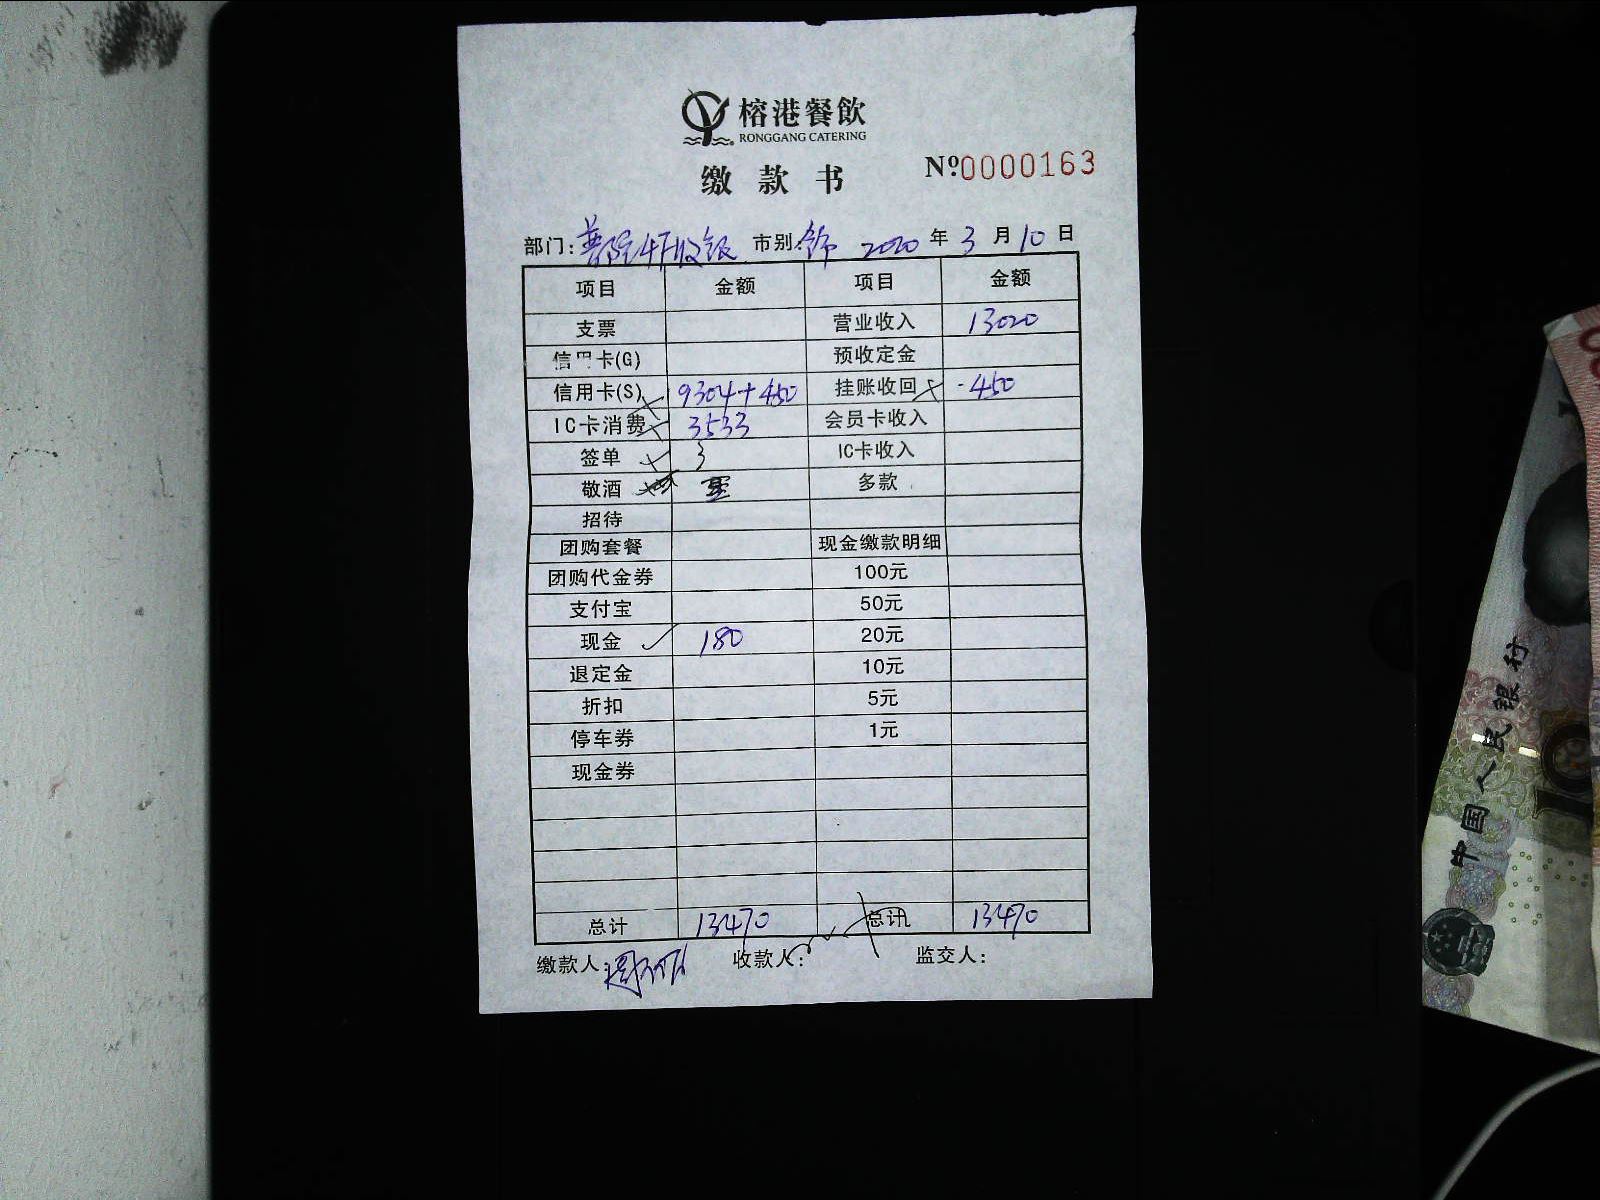 榕港餐飲
RONGGANG CATERING
缴款书
Nº:0000163
部门:普陀4F收银 市别: 2020 年 3 月 10 日
项目 金额 项目 金额
支票 营业收入 13020
信用卡(G) 预收定金
信用卡(S) 9304+450 挂账收回 -450
IC卡消费 3533 会员卡收入
签单 3 IC卡收入
敬酒 多款
招待
团购套餐 现金缴款明细
团购代金券 100元
支付宝 50元
现金 180 20元
退定金 10元
折扣 5元
停车券 1元
现金券
总计 13470 总计 13470
缴款人: 收款人: 监交人:
中国人民银行